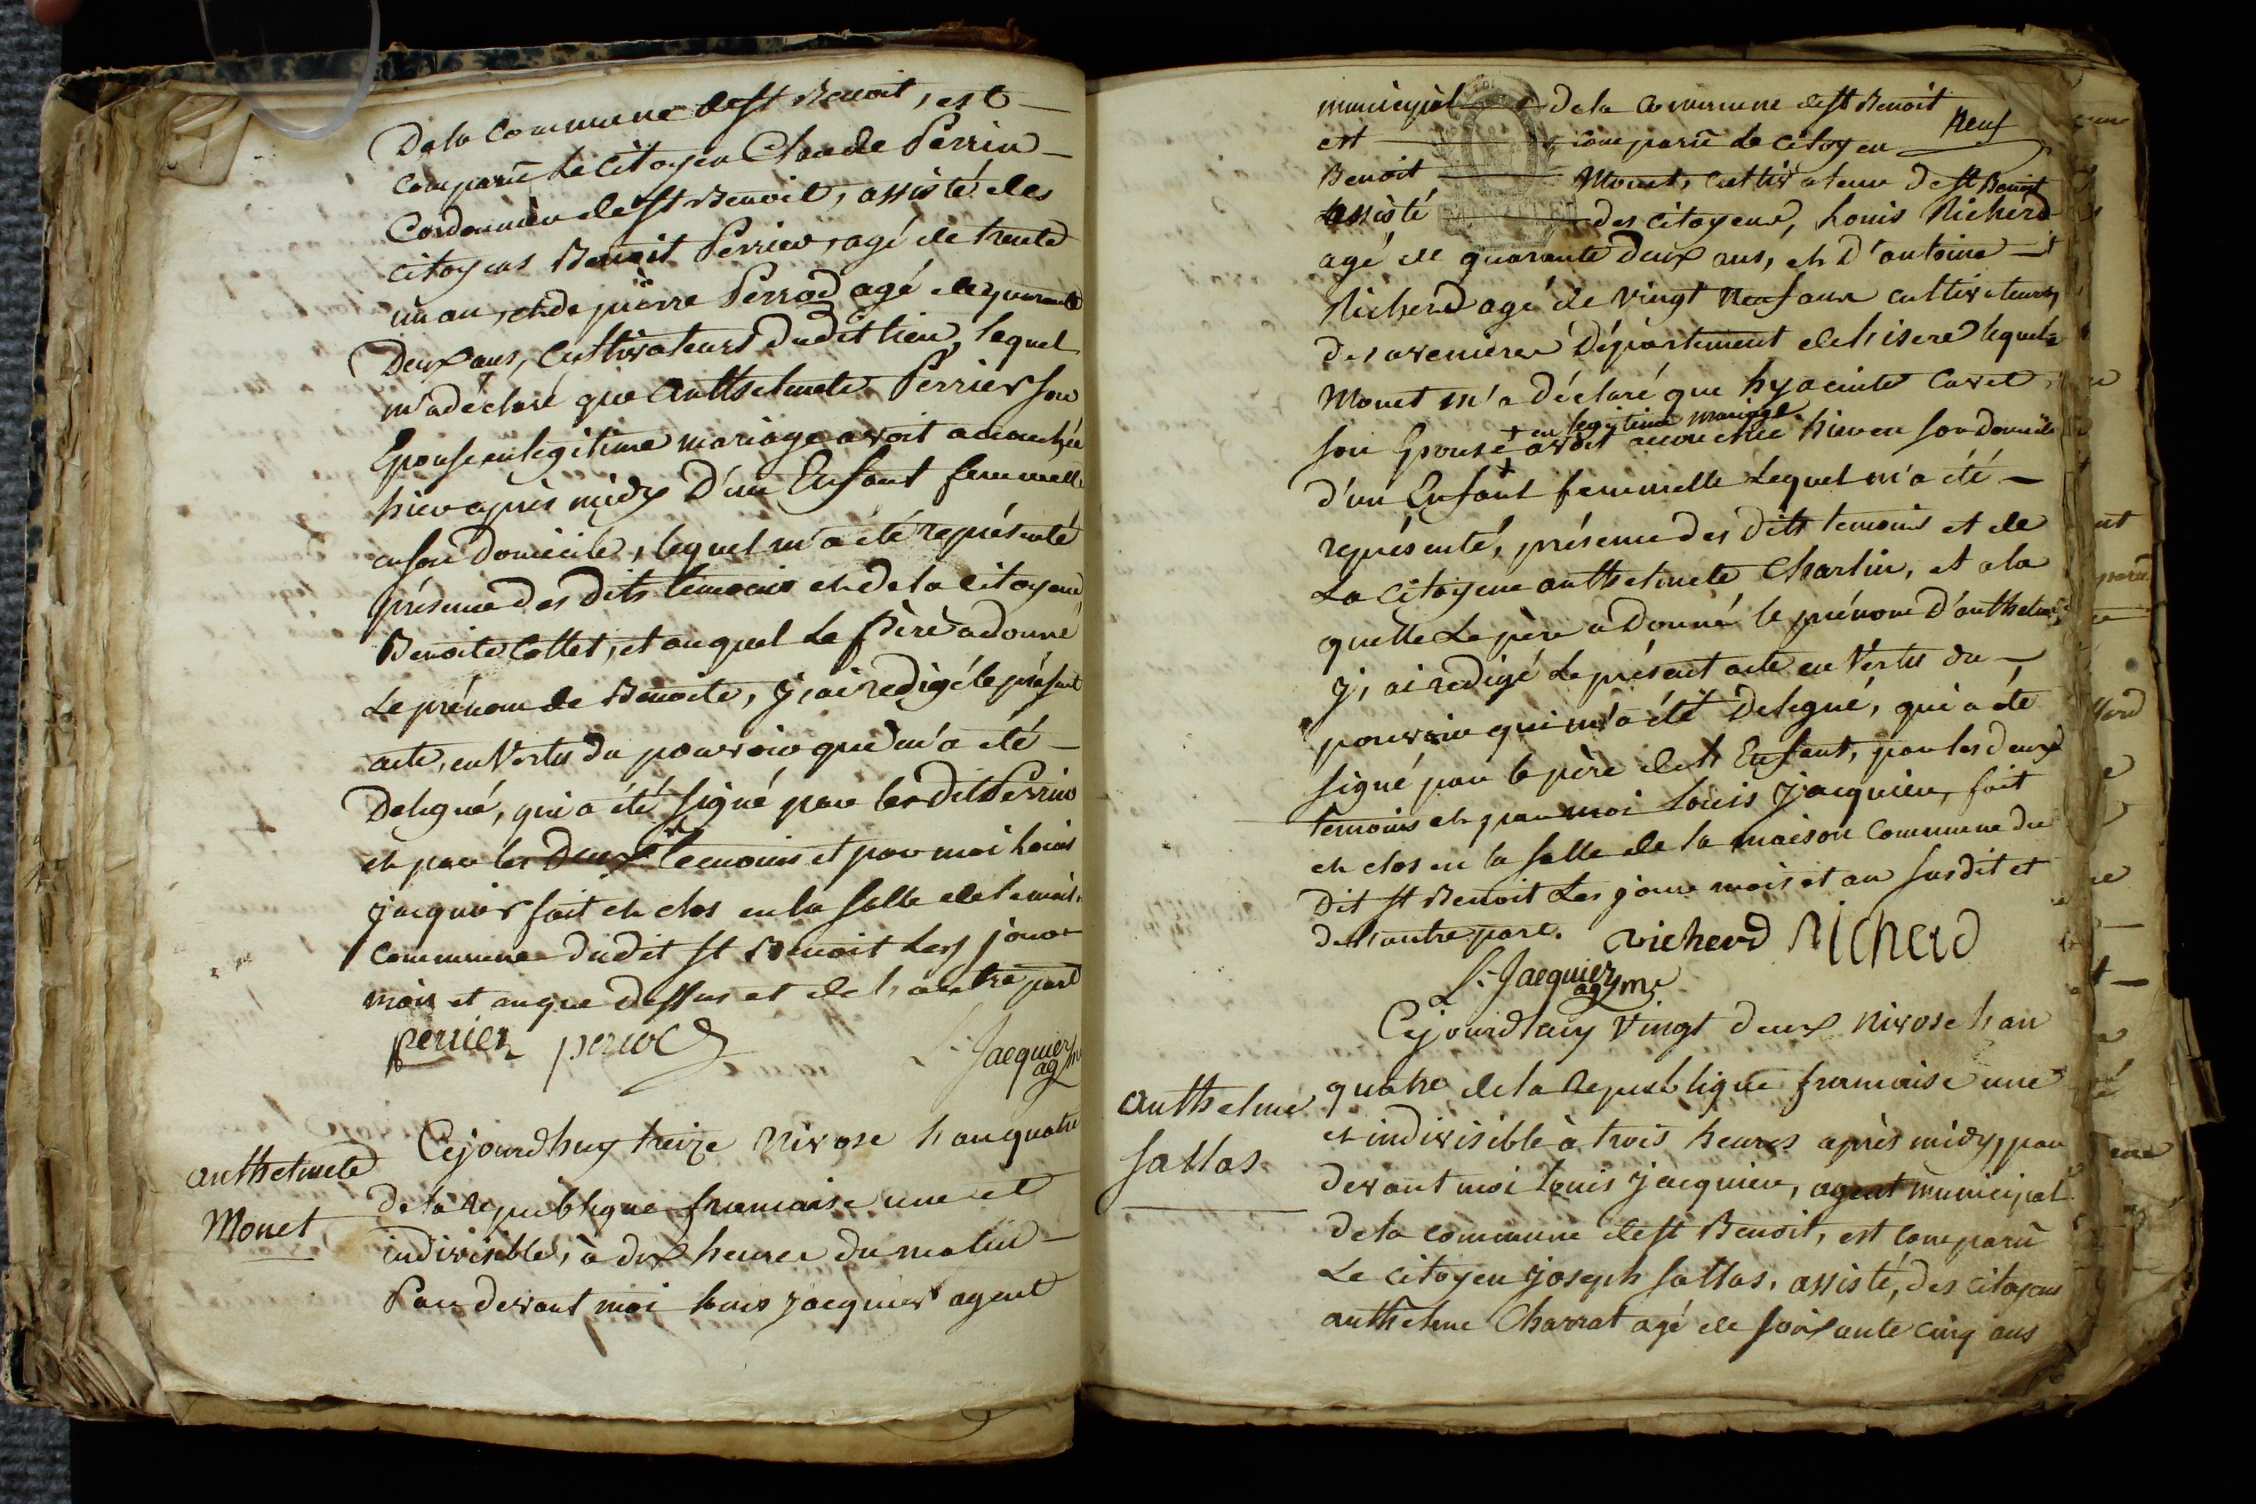 De la Commune de St Benoit, est
comparû le citoyen Claude Perrin
Cordonnier de St Benoit, assisté des
citoyens Benoit Perrier, agé de trente
un an, et de pierre Perrod agé de quarante
Deux ans, Cultivateurs dudit lieu, lequel
m'a déclaré que Anthelmete Perrier son
Epouse en legitime mariage avoit accouchée
hier après midy D'un Enfant femmelle
en son Domicile, lequel m'a été représenté
présence des dits temoins et de la citoyene
Benoite Collet, et auquel le père a donné
Le prénom de Benoite, j'ai redigé le présent
acte, en Vertu du pouvoir qui m'a été
Delegué, qui a été signé par les dit Perrier
et par les deux temoins et par moi Louis
jacquier fait et clos en la salle de la mais.
commune dudit St Benoit Les jour
mois et an que dessus et de l'autre part
perrier perrod L. Jacquier
ag m
Anthelmete
Monet
Cejourdhuy treize Nivose l'an quatre
de la république francaise une et
indivisible, à dix heures du matin
Par devant moi Louis jacquier agent
municipal de la commune de St Benoit
Neuf
est comparû le citoyen
Benoit Monet, cultivateur de St Benoit
assisté des citoyens, Louis Richerd
agé de quarante deux ans, et D'antoine
Richerd agé de vingt neuf ans cultivateurs
des avenieres Département de l'isere lequel
Monet m'a déclaré que hyacinte Cavet
en legitime mariage
son Epouse avoit accouchée hier en son domicile
d'un Enfant femmelle Lequel m'a été
représenté, présence des dits temoins et de
La citoyene anthelmete Charlin, et a la
quelle Le père a Donné le prénom d'anthelmete
j'ai redigé Le présent acte en Vertu du
pouvoir qui m'a été Delegué, qui a été
signé par le père de l'Enfant, par les deux
temoins et par moi Louis Jacquier, fait
et clos en la salle de la maison commune du
Dit St Benoit Les jour mois et an susdit et
de l'autre part. richerd Richerd
L. Jacquier
ag m.
Anthelme
Sallas
Cejourdhuy Vingt deux nivose l'an
quatre de la Republique francaise une
et indivisible à trois heures après midy, par
devant moi Louis Jacquier, agent municipal
de la commune de St Benoit, est comparû
Le citoyen joseph Sallas, assisté, des citoyens
anthelme Charrat agé de soixante cinq ans